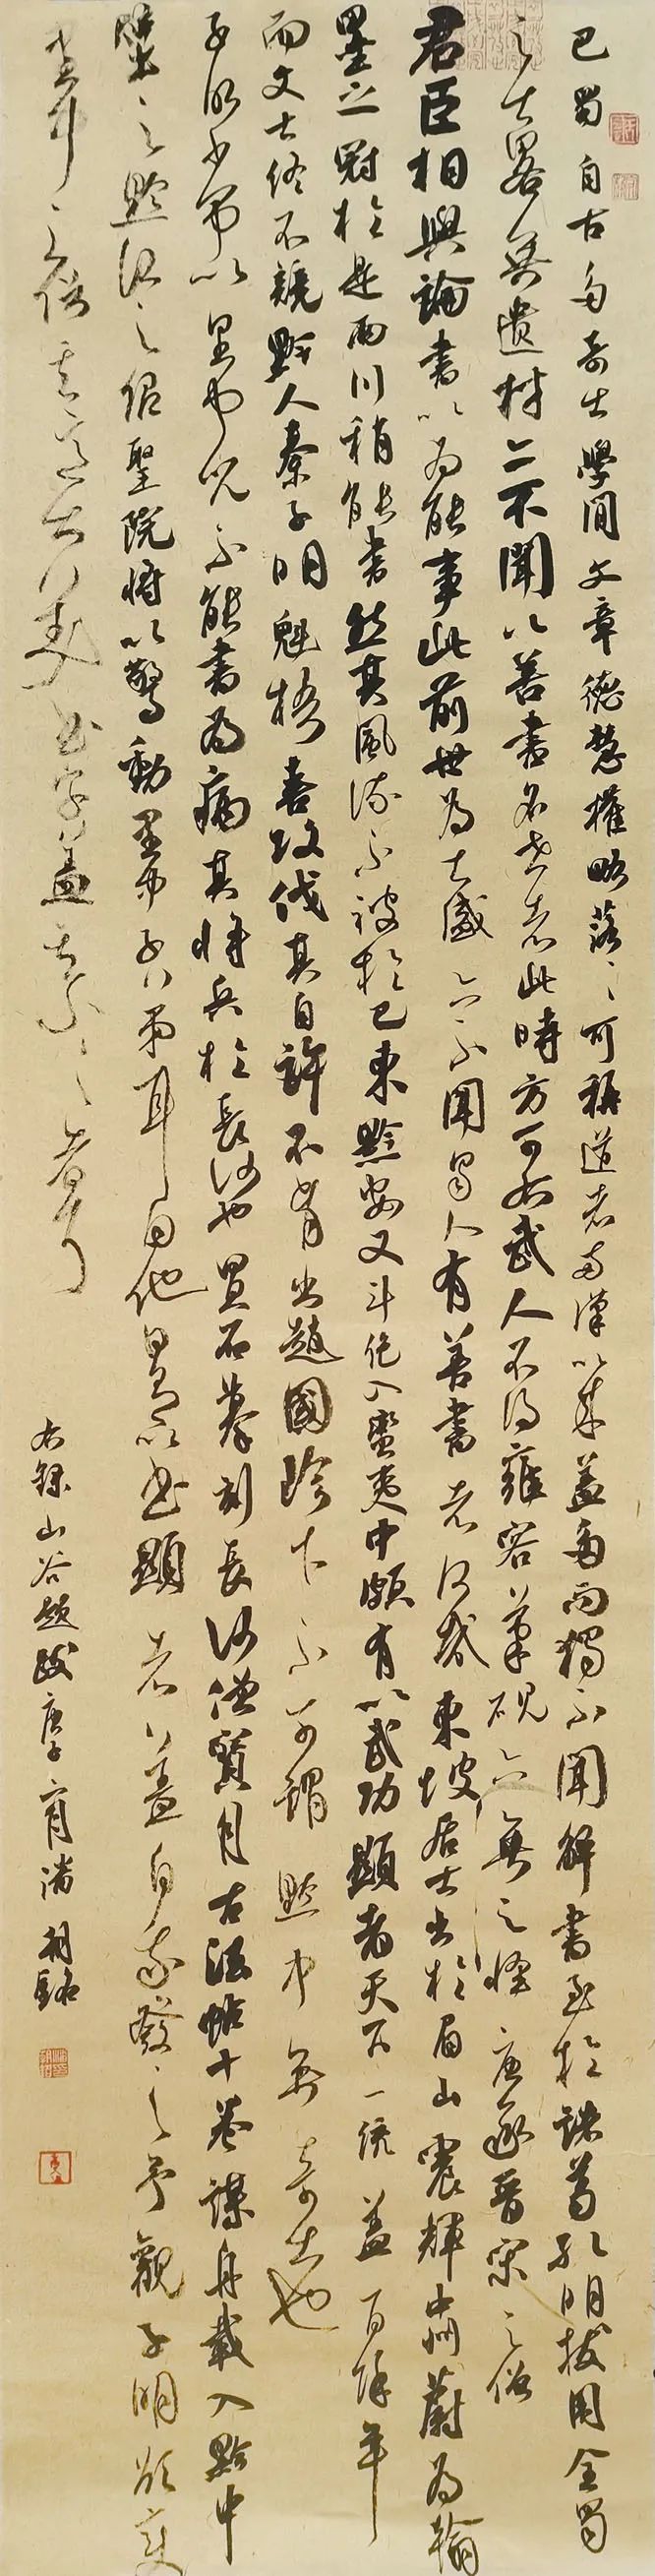 巴蜀自古多奇士學問文章德慧權略落々可稱道者兩漢以來蓋多而獨不聞解書至於諸葛孔明拔用全蜀
之士略無遺材亦不聞以善書名世者此時方右武人不得雍容筆硯亦無足怪唐承晉宋之俗
君臣相與論書以為能事此前世為大盛亦不聞蜀人有善書者何哉東坡居士出於眉山震輝中州蔚為翰
墨之冠於是兩川稍能書然其風流不被於巴東黔安又斗絕入蠻夷中頗有以武功顯者天下一統蓋百餘年
而文士終不競黔人秦子明魁梧喜攻伐其自許不肯出趙國珍下不可謂黔中無奇士也
子明常以里中兒不能書為病其將兵於長沙也買石摹刻長沙僧寶月古法帖十卷謀舟載入黔中
壁之黔江之紹聖院將以驚動里中子弟耳目他日有以書顯者蓋自我發之予觀子明欲變
里中之俗其意甚美書字蓋其小小者耳
右錄山谷題跋庚子